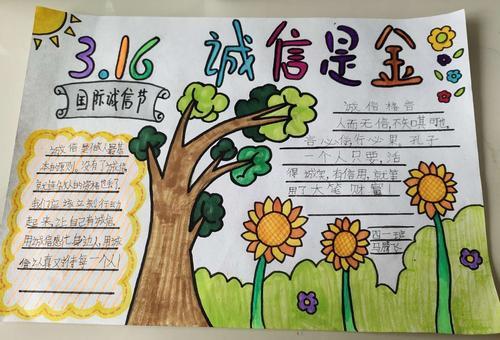 3.16
诚信是金
国际诚信节
诚信是做人最基
本的原则。没有了诚信,
就连做人的资格也丢了,
我们应该立刻行动
起来,让自己有诚信,
用诚信感化身边人,用诚
信以真文待每一个人!
诚信格言
人而无信,不知其可也。
言必信行必果。孔子
一个人只要活
得诚实,有信用,就等
于有了大笔财富!
四一班